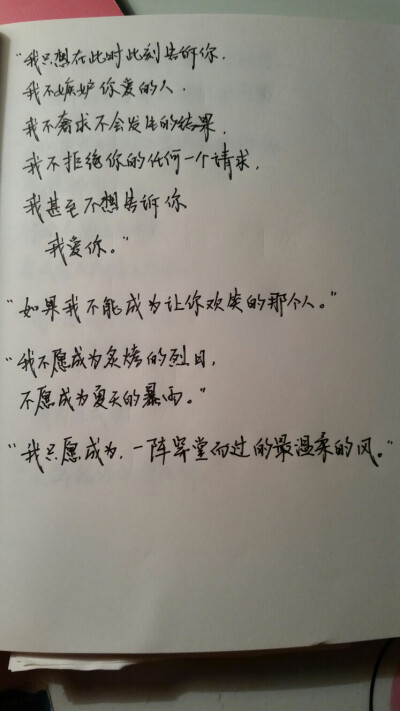 “我只想在此时此刻告诉你.
我不嫉妒你爱的人.
我不奢求不会发生的结果.
我不拒绝你的任何一个请求.
我甚至不想告诉你
我爱你。”
“如果我不能成为让你欢笑的那个人。”
“我不愿成为炙烤的烈日,
不愿成为夏天的暴雨。”
“我只愿成为,一阵穿堂而过的最温柔的风。”